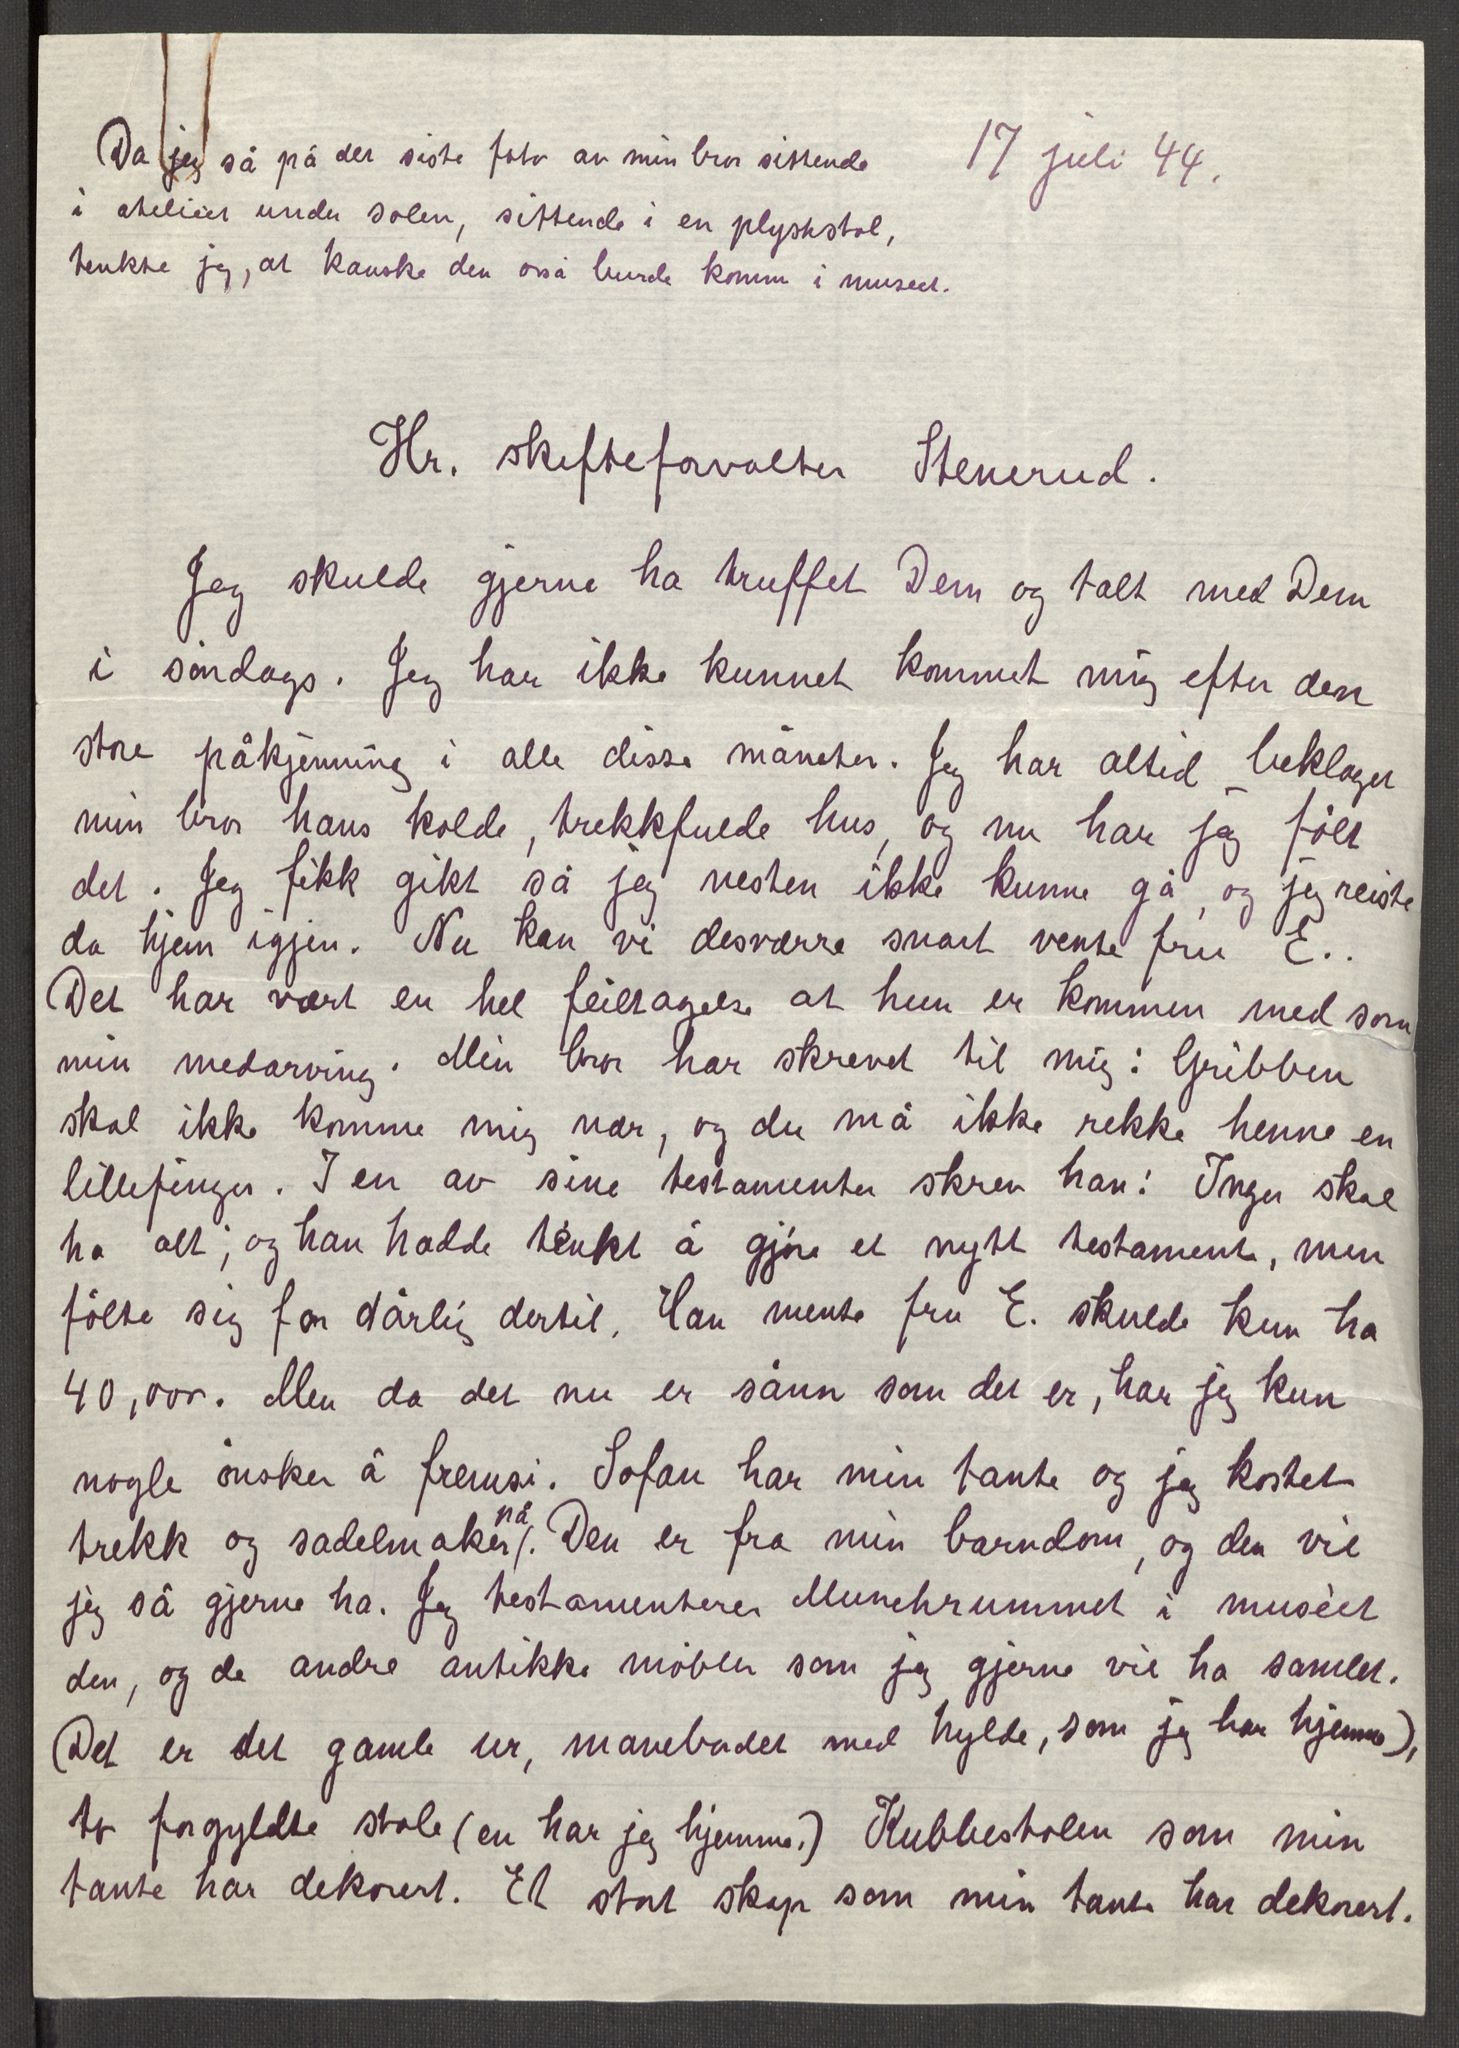 Da jeg så på det siste foto av min bror sittende
i atelieet under solen, sittende i en plyschstol,
tenkte jeg, at kanske den osså burde komme i museet.
17 juli 44.
Hr. skifteforvalter Stenerud.
Jeg skulde gjerne ha truffet Dem og talt med Dem
i söndags. Jeg har ikke kunnet kommet mig efter den
store påkjenning i alle disse måneter. Jeg har altid beklaget
min bror hans kolde, trekkfulde hus, og nu har jeg fölt
det. Jeg fikk gikt så jeg nesten ikke kunne gå, og jeg reiste
da hjem igjen. Nu kan vi desværre snart vente fru E..
Det har vært en hel feiltagelse at hun er kommen med som
min medarving. Min bror har skrevet til mig: Gribben
skal ikke komme mig nær, og du må ikke rekke henne en
lillefinger. I en av sine testamenter skrev han: Inger skal
ha alt; og han hadde tenkt å gjöre et nytt testamente, men
fölte sig for dårlig dertil. Han mente fru E. skulde kun ha
40,000. Men da det nu er sånn som det er, har jeg kun
nogle önsker å fremsi. Sofaen har min tante og jeg kostet
trekk og sadelmaker på. Den er fra min barndom, og den vil
jeg så gjerne ha. Jeg testamenterer Munchrummet i muséet
den, og de andre antikke möbler som jeg gjerne vil ha samlet.
(Det er det gamle ur, mavebodet med hylde, som jeg har hjemme),
to forgyldte stole (en har jeg hjemme.) Kubbestolen som min
tante har dekorert. Et stort skap som min tante har dekorert.